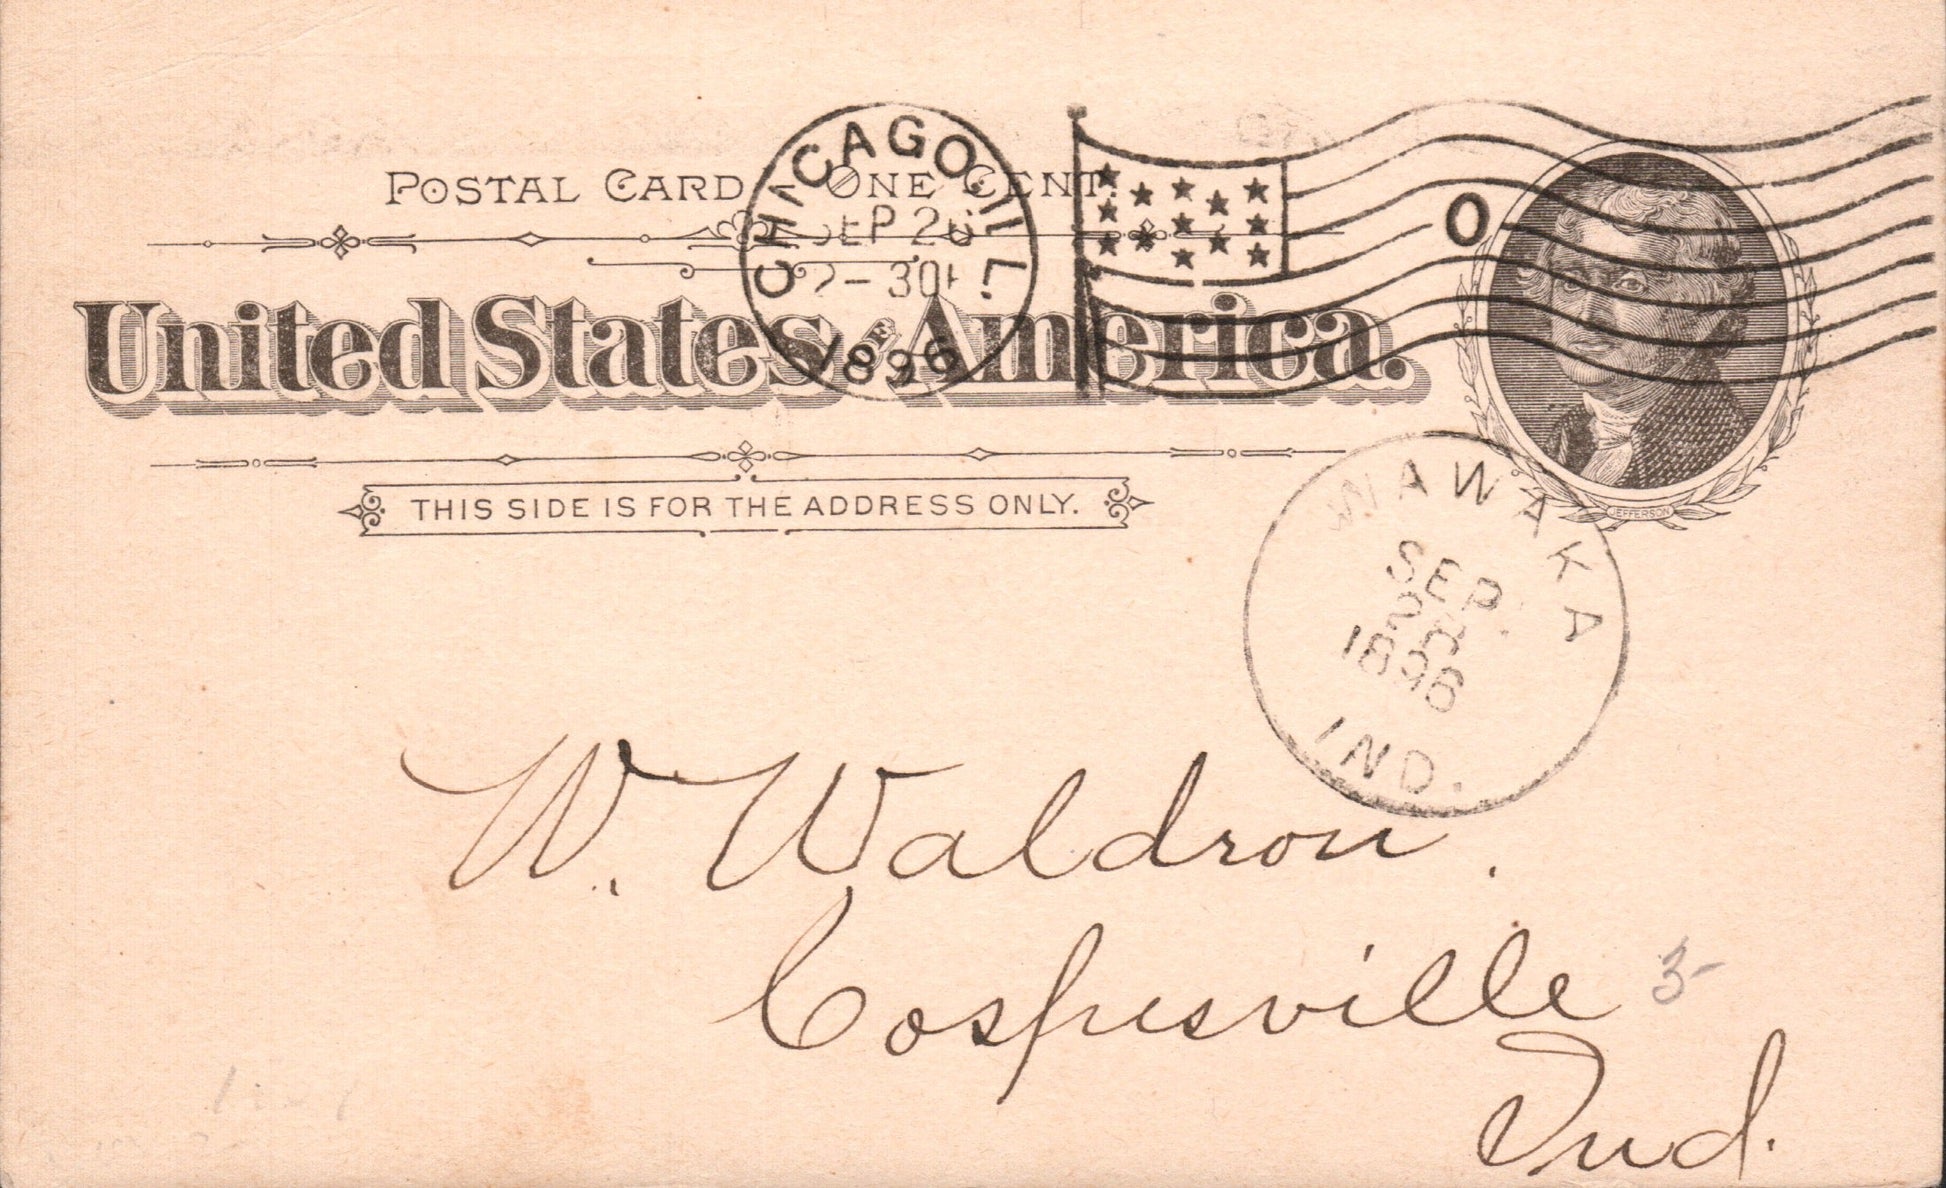 POSTAL CARD. ONE CENT.
CHICAGO, ILL.
SEP 26
2-30P
1896
O
United States of America.
JEFFERSON
THIS SIDE IS FOR THE ADDRESS ONLY.
WAWAKA
SEP.
28
1896
IND.
W. Waldron.
Cospusville
3-
Ind.